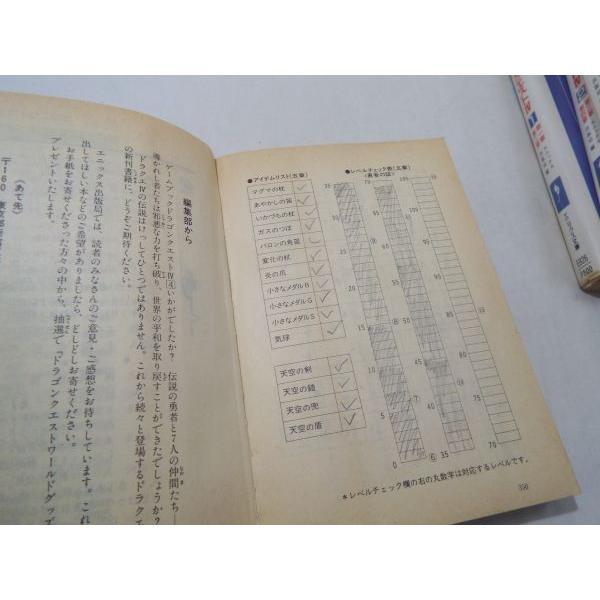 編集部から
ゲームブックドラゴンクエストⅣ④いかがでしたか？ 伝説の勇者と7人の仲間たち――
導かれし者たちは邪悪な力を打ち破り、世界の平和を取り戻すことができたでしょうか？
ドラクエⅣの伝説はけっしてひとつではありません。これから続々と登場するドラクエ
の新刊書籍に、どうぞご期待ください。
エニックス出版局では、読者のみなさんのご意見・ご感想をお待ちしています。これ
出してほしい本などのご希望がありましたら、どしどしお寄せください。
お手紙をお寄せくださった方々の中から、抽選で『ドラゴンクエストワールドグッズ
プレゼントいたします。
（あて先）
〒160
●アイテムリスト(五章)
マグマの杖
あやかしの笛
いかづちの杖
ガスのつぼ
バロンの角笛
変化の杖
炎の爪
小さなメダルB
小さなメダルG
小さなメダルS
気球
天空の剣
天空の鎧
天空の兜
天空の盾
●レベルチェック表(五章)
35
30
25
20
15
10
5
0
70
65
60
55
50
45
40
35
105
100
95
90
85
80
75
70
＊レベルチェック欄の右の丸数字は対応するレベルです。
350